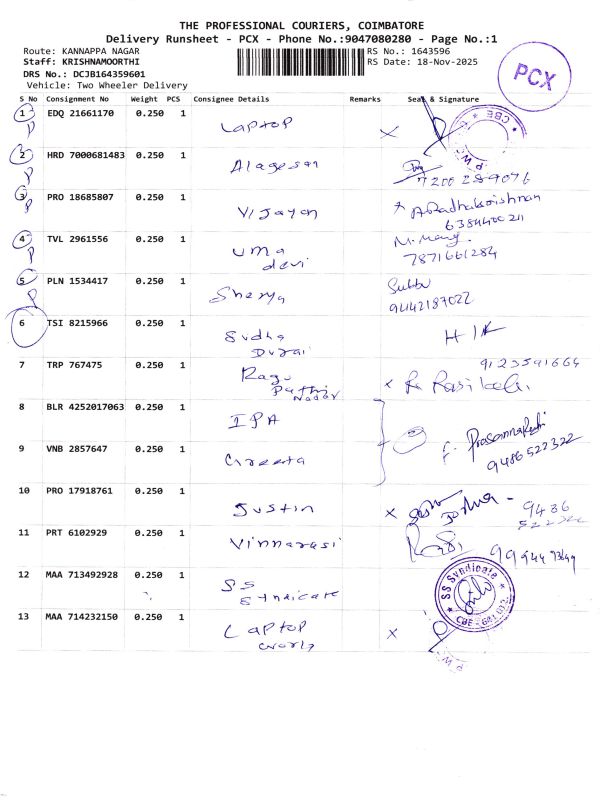 THE PROFESSIONAL COURIERS, COIMBATORE
Delivery Runsheet - PCX - Phone No.:9047080280 - Page No.:1
Route: KANNAPPA NAGAR
RS No.: 1643596
Staff: KRISHNAMOORTHI
RS Date: 18-Nov-2025
DRS No.: DCJB164359601
Vehicle: Two Wheeler Delivery
PCX
S No Consignment No Weight PCS Consignee Details Remarks Seal & Signature
1 EDQ 21661170 0.250 1 Laptop
CBE
2 HRD 7000681483 0.250 1 Alagesan
7200289076
3 PRO 18685807 0.250 1 Vijayan A Radhakrishnan
6384400211
4 TVL 2961556 0.250 1 uma
devi
7871661284
5 PLN 1534417 0.250 1 Subbu
9442187022
6 TSI 8215966 0.250 1 Sudha
Durai
H/K
7 TRP 767475 0.250 1 Ragu
Nadar
9123591664
8 BLR 4252017063 0.250 1 IPA
9 VNB 2857647 0.250 1 Greeta
9486522322
10 PRO 17918761 0.250 1 Justin
Joshua - 9436
11 PRT 6102929 0.250 1 Vinnarasi
12 MAA 713492928 0.250 1 SS
Syndicate
SS Syndicate
13 MAA 714232150 0.250 1 Laptop
World